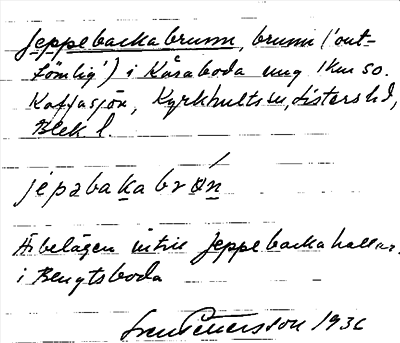 Jeppebackabrunn, brunn ('out-
tömlig') i Kåraboda ung 1km so.
Kaffasjön, Kyrkhults sn, Listers hd,
Blek. l.
jépəbakabrøn
Är belägen intill Jeppebackahallar.
i Bengtsboda
Sven Pettersson 1936